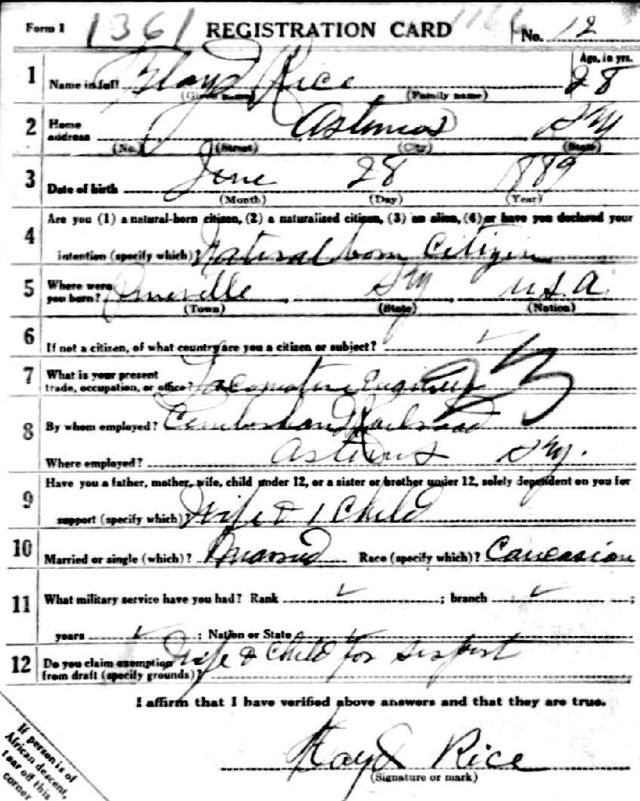 Form 1 1361 REGISTRATION CARD 1166 No. 12
1 Name in full Floyd Rice Age, in yrs. 28
(Given name) (Family name)
2 Home address Ky
(No.) (Street) (City) (State)
3 Date of birth June 28 1889
(Month) (Day) (Year)
4 Are you (1) a natural-born citizen, (2) a naturalized citizen, (3) an alien, (4) or have you declared your
intention (specify which)? Natural born Citizen
5 Where were you born? Pineville Ky U.S.A.
(Town) (State) (Nation)
6 If not a citizen, of what country are you a citizen or subject? ✓
7 What is your present trade, occupation, or office? Locomotive Engineer 23
8 By whom employed? Cumberland Railroad
Where employed? Ky.
9 Have you a father, mother, wife, child under 12, or a sister or brother under 12, solely dependent on you for
support (specify which)? Wife & 1 Child
10 Married or single (which)? Married Race (specify which)? Caucasion
11 What military service have you had? Rank ✓ ; branch ✓ ;
years ✓ ; Nation or State
12 Do you claim exemption from draft (specify grounds)? Wife & Child for support
I affirm that I have verified above answers and that they are true.
Floyd Rice
(Signature or mark)
If person is of
African descent,
tear off this
corner